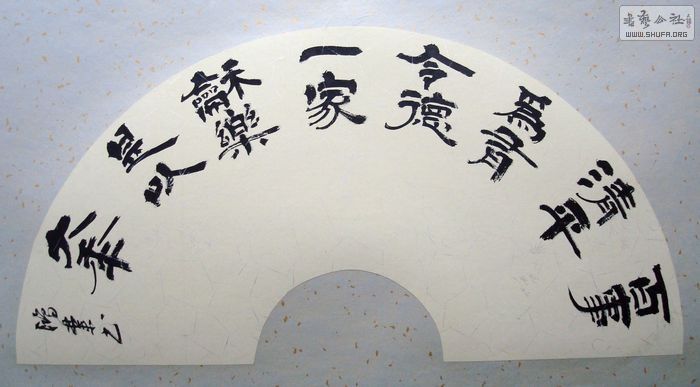 百事
清平
為壽
令德
一家
龢樂
是以
大年
书艺公社
WWW.SHUFA.ORG